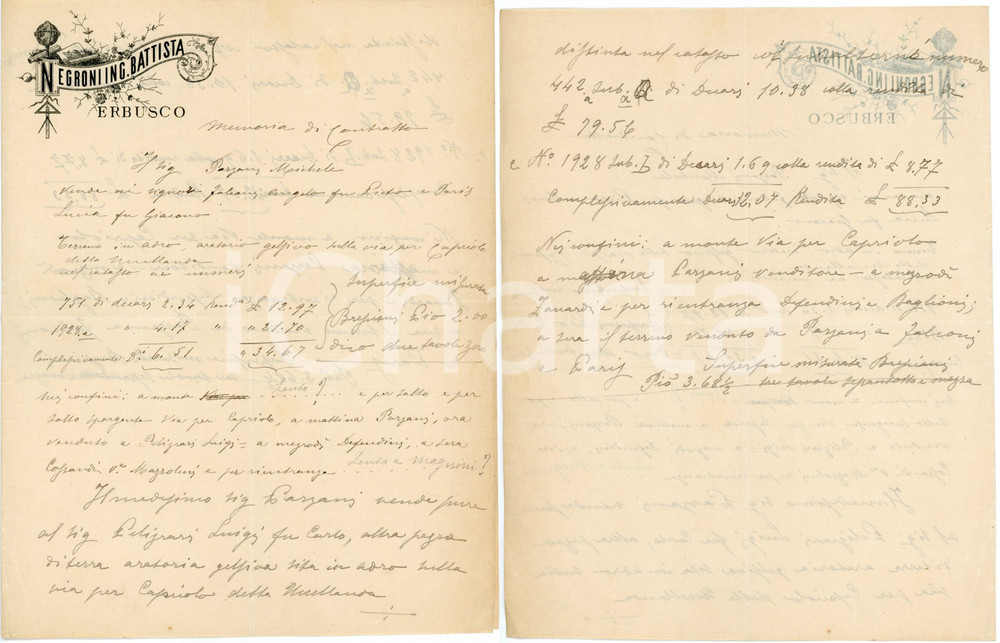 NEGRONI ING. BATTISTA
ERBUSCO
Memoria di Contratto
Il Sig Parzani Michele
vende ai signori Falconi Angelo fu Pietro e Paris
Lucia fu Giacomo
Terreno in Adro aratorio gelsivo sulla via per Capriolo
detto Nuellanda
nel catasto ai numeri
Superfice misurata
751 di decari 2.34 Rendi £ 12.97
Bresciani Pio 2.00
1928.a " 4.17 " " 21.70
dico due tavole zero
Complessivamente Di 6.51 " 34.67
Nei confini: a monte Lento? e per salto e per
salto sporgente Via per Capriolo, a mattina Parzani, ora
venduto a Peligrari Luigi - a mezzodì Defendini, a sera
Cossandi Vi Mazzolini e per rientranza Lento e Magnini?
Il medesimo sig Parzani vende pure
al sig Peligrari Luigi fu Carlo, altra pezza
di terra aratoria gelsiva sita in Adro sulla
via per Capriolo detta Nuellanda
distinta nel catasto numero
442 a sub. a di Decari 10.38 colla
£ 79.56
e No 1928 sub. b di Decari 1.69 colla rendita di £ 8.77
Complessivamente Decari 12.07 Rendita £ 88.33
Nei confini: a monte Via per Capriolo
a mattina Parzani venditore - a mezzodì
Zanardi e per rientranza Defendini e Baglioni;
a sera il terreno venduto da Parzani a Falconi
e Paris Superfice misurata Bresciani
Pio 3.68½ tre tavole sepantotto e mezza
iCharta